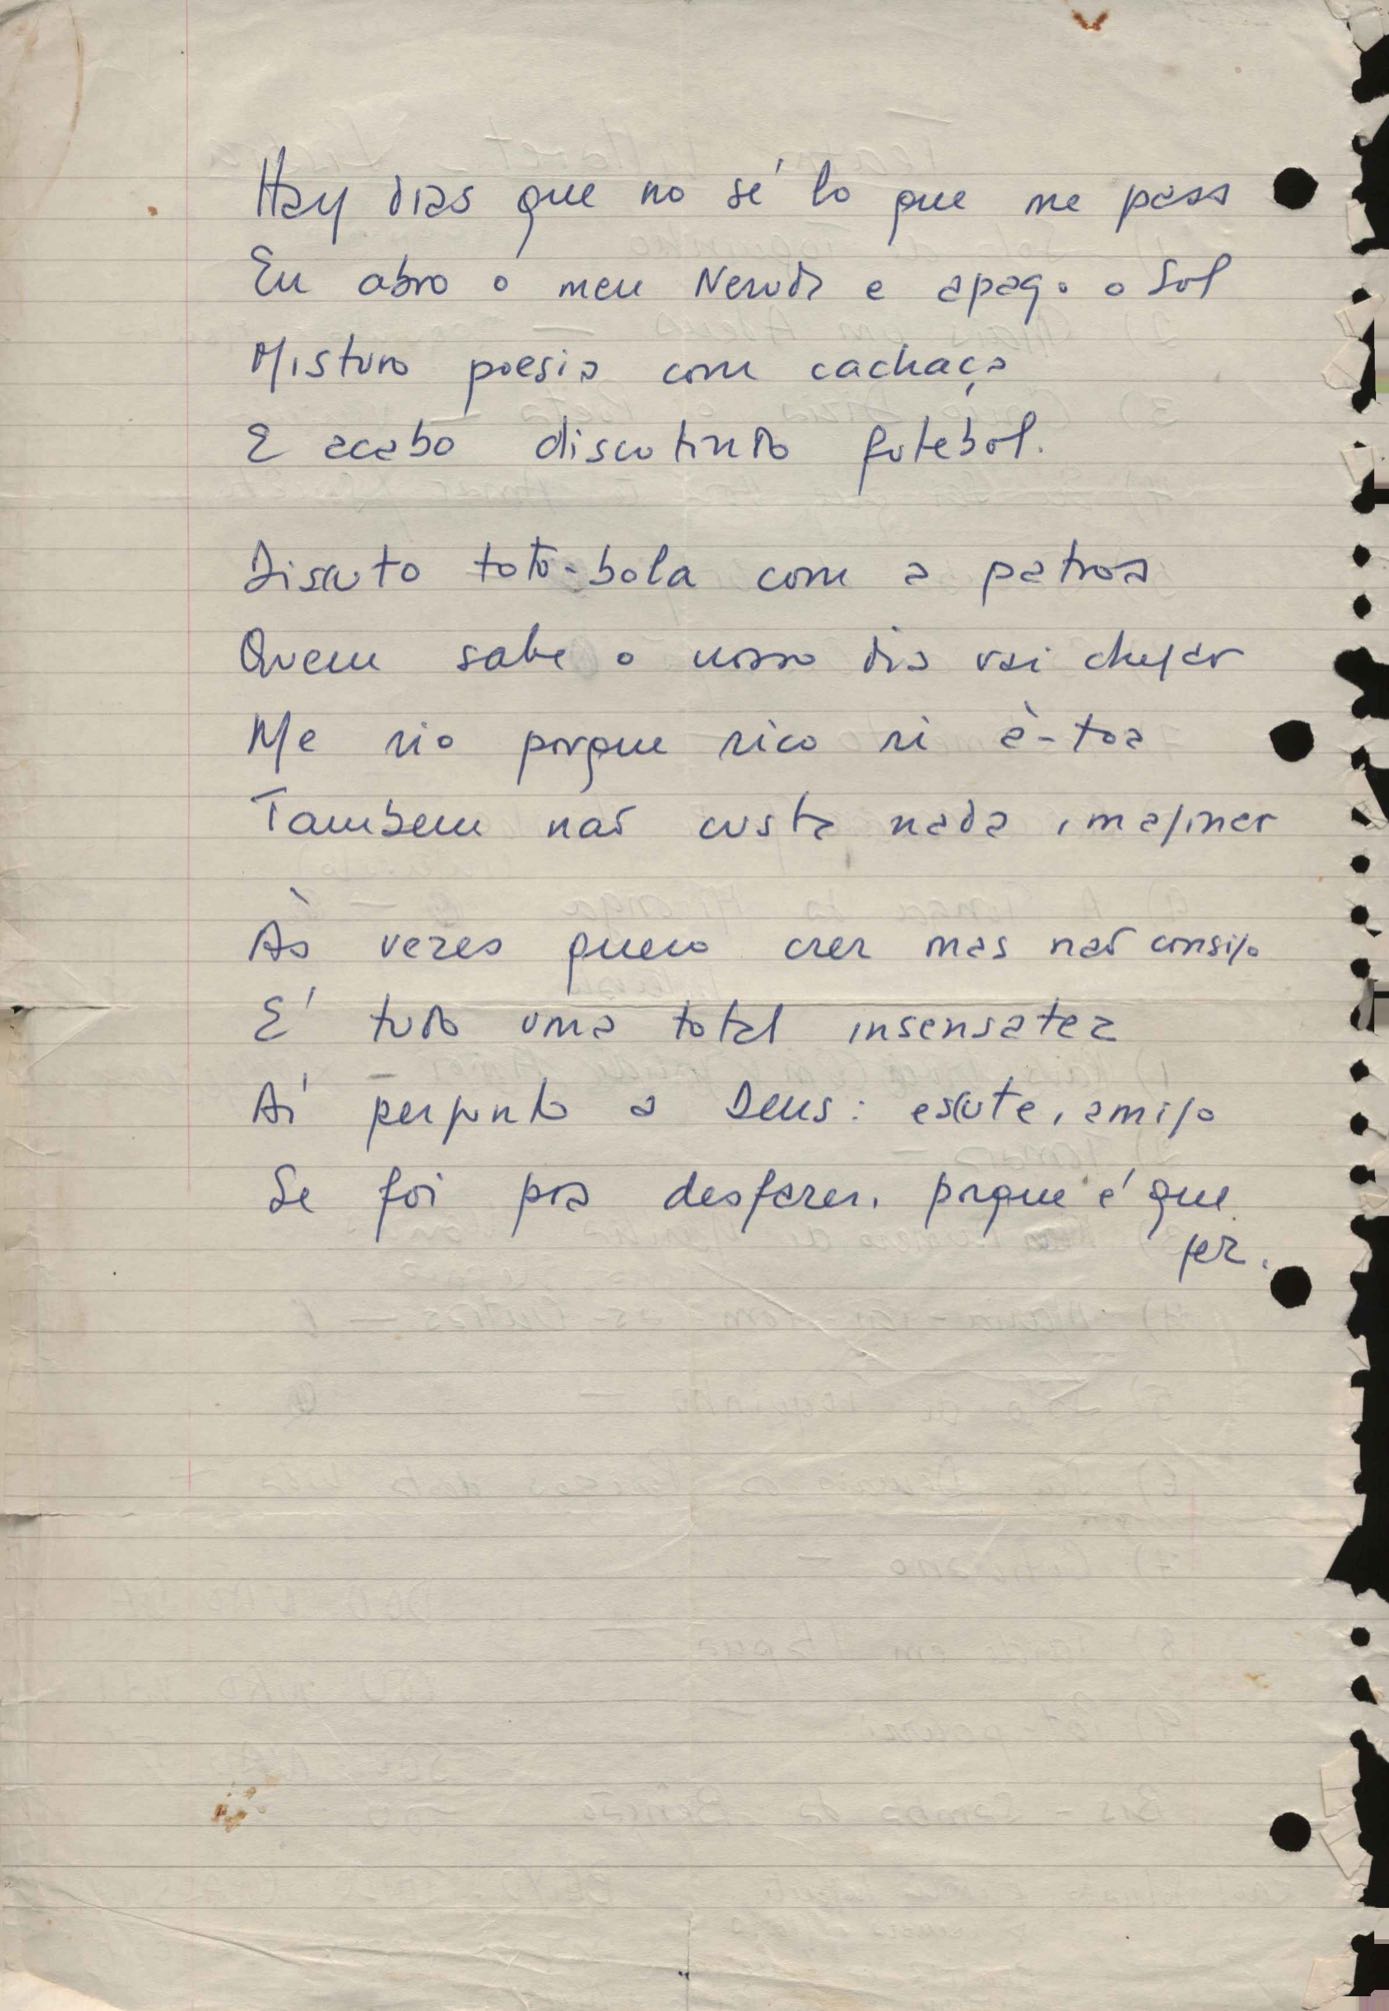 Hay dias que no sé lo que me pasa
Eu abro o meu Neruda e apago o Sol
Misturo poesia com cachaça
E acabo discutindo futebol.
Discuto toto-bola com a patroa
Quem sabe o nosso dia vai chegar
Me rio porque rico ri à-toa
Tambem não custa nada imaginar
Às vezes quero crer mas não consigo
E' tudo uma total insensatez
Aí pergunto a Deus: escute, amigo
Se foi pra desfazer, porque é que
fez.